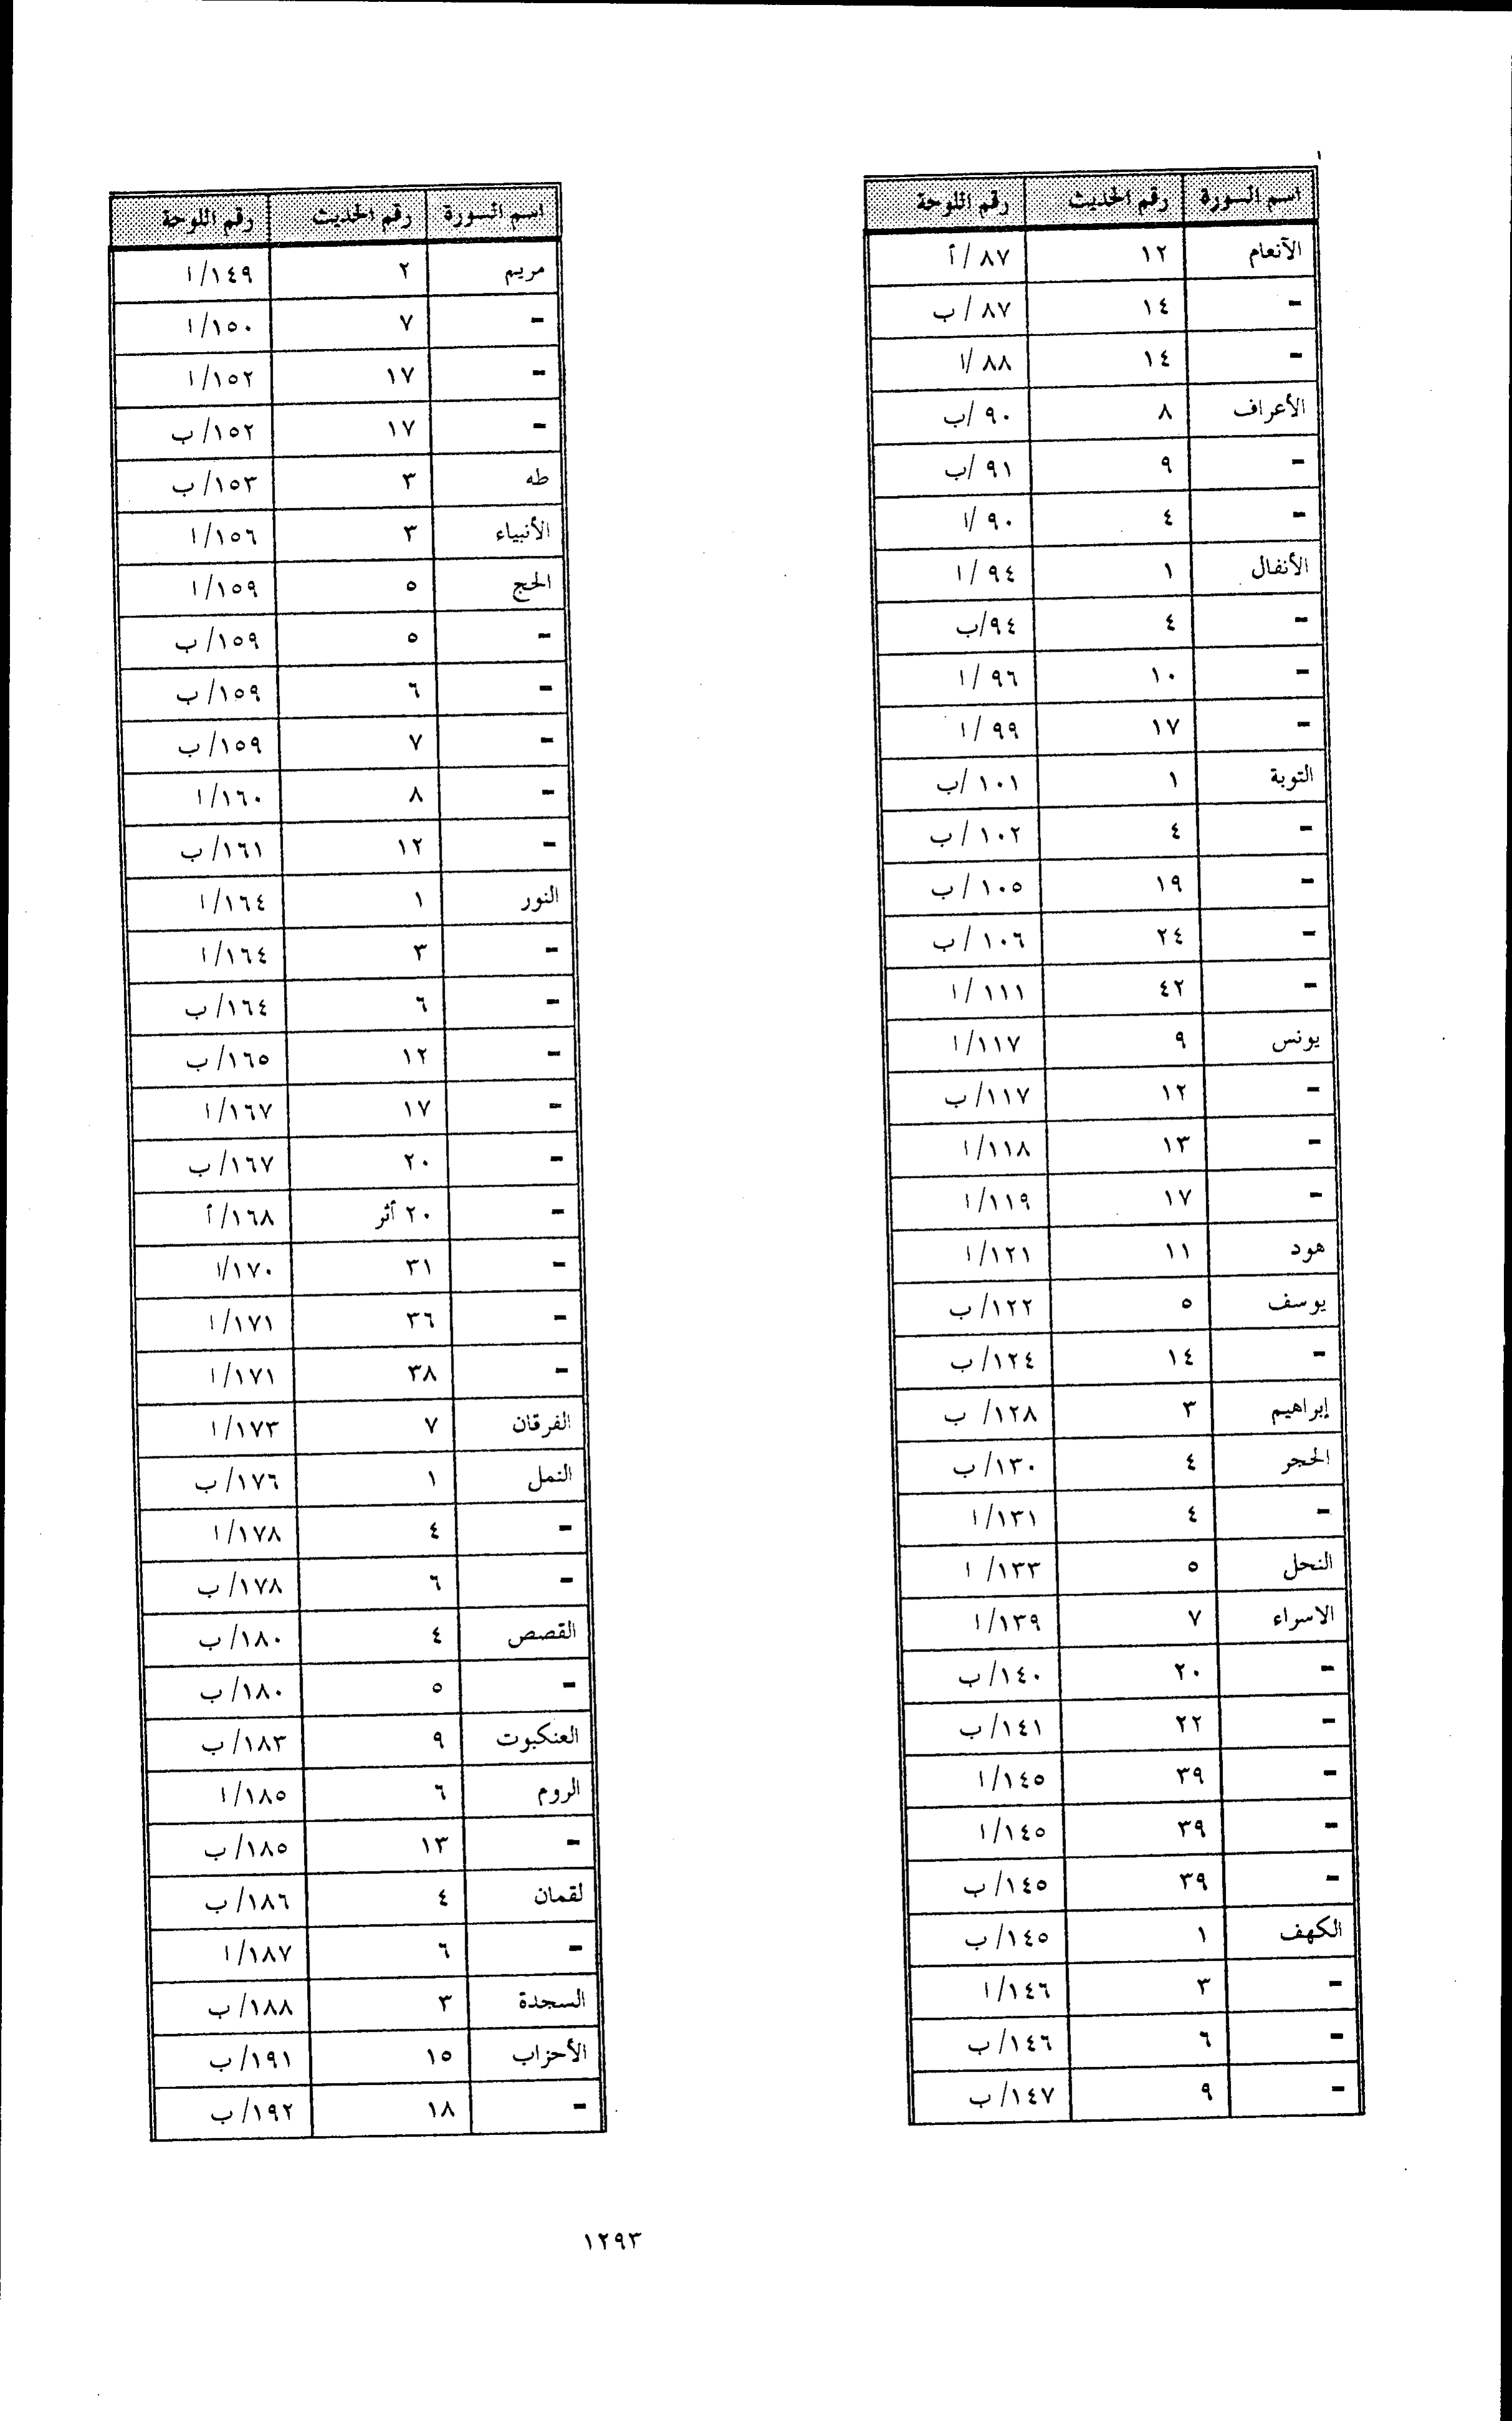 اسم السورة رقم الحديث رقم اللوحة
الآنعام ١٢ ٨٧ /أ
- ١٤ ٨٧ / ب
- ١٤ ٨٨ /ا
الأعراف ٨ ٩٠ /ب
- ٩ ٩١ /ب
- ٤ ٩٠ /ا
الأنفال ١ ٩٤ / ا
- ٤ ٩٤/ب
- ١٠ ٩٦ / ا
- ١٧ ٩٩ / ا
التوبة ١ ١٠١ /ب
- ٤ ١٠٢ / ب
- ١٩ ١٠٥ / ب
- ٢٤ ١٠٦ / ب
- ٤٢ ١١١ / ا
يونس ٩ ١١٧/ ا
- ١٢ ١١٧/ ب
- ١٣ ١١٨/ ا
- ١٧ ١١٩/ ا
هود ١١ ١٢١/ ا
يوسف ٥ ١٢٢/ ب
- ١٤ ١٢٤/ ب
إبراهيم ٣ ١٢٨/ ب
الحجر ٤ ١٣٠/ ب
- ٤ ١٣١/ ا
النحل ٥ ١٣٣/ ا
الاسراء ٧ ١٣٩/ ا
- ٢٠ ١٤٠/ ب
- ٢٢ ١٤١/ ب
- ٣٩ ١٤٥/ ا
- ٣٩ ١٤٥/ ا
- ٣٩ ١٤٥/ ب
الكهف ١ ١٤٥/ ب
- ٣ ١٤٦/ ا
- ٦ ١٤٦/ ب
- ٩ ١٤٧/ ب
اسم السورة رقم الحديث رقم اللوحة
مريم ٢ ١٤٩/ ا
- ٧ ١٥٠/ ا
- ١٧ ١٥٢/ ا
- ١٧ ١٥٢/ ب
طه ٣ ١٥٣/ ب
الأنبياء ٣ ١٥٦/ ا
الحج ٥ ١٥٩/ ا
- ٥ ١٥٩/ ب
- ٦ ١٥٩/ ب
- ٧ ١٥٩/ ب
- ٨ ١٦٠/ ا
- ١٢ ١٦١/ ب
النور ١ ١٦٤/ ا
- ٣ ١٦٤/ ا
- ٦ ١٦٤/ ب
- ١٢ ١٦٥/ ب
- ١٧ ١٦٧/ ا
- ٢٠ ١٦٧/ ب
- ٢٠ أثر ١٦٨/ أ
- ٣١ ١٧٠/ا
- ٣٦ ١٧١/ ا
- ٣٨ ١٧١/ ا
الفرقان ٧ ١٧٣/ ا
النمل ١ ١٧٦/ ب
- ٤ ١٧٨/ ا
- ٦ ١٧٨/ ب
القصص ٤ ١٨٠/ ب
- ٥ ١٨٠/ ب
العنكبوت ٩ ١٨٣/ ب
الروم ٦ ١٨٥/ ا
- ١٣ ١٨٥/ ب
لقمان ٤ ١٨٦/ ب
- ٦ ١٨٧/ ا
السجدة ٣ ١٨٨/ ب
الأحزاب ١٥ ١٩١/ ب
- ١٨ ١٩٢/ ب
١٢٩٣